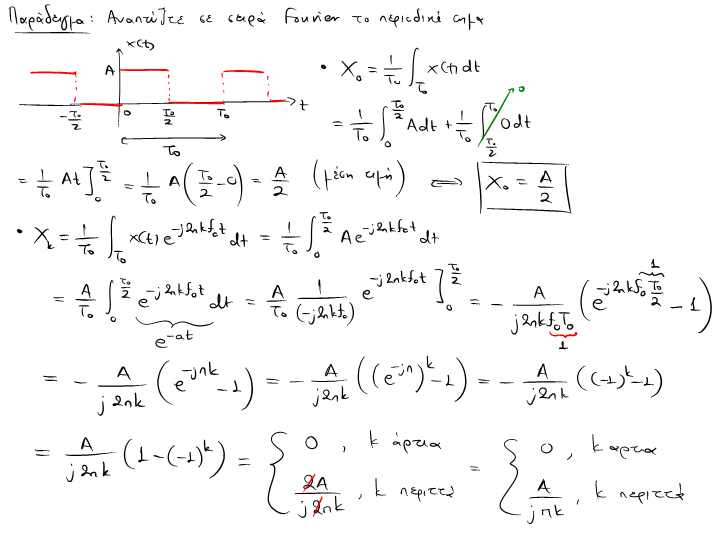 Παράδειγμα: Αναπτύξτε σε σειρά Fourier το περιοδικό σήμα
x(t)
A
-T₀/2 0 T₀/2 T₀ t
T₀
• X₀ = 1/T₀ ∫_T₀ x(t) dt
= 1/T₀ ∫₀^{T₀/2} A dt + 1/T₀ ∫_{T₀/2}^{T₀} 0 dt 0
= 1/T₀ At]₀^{T₀/2} = 1/T₀ A(T₀/2 - 0) = A/2 (μέση τιμή) ⟺ X₀ = A/2
• X_k = 1/T₀ ∫_T₀ x(t) e^{-j2πkf₀t} dt = 1/T₀ ∫₀^{T₀/2} A e^{-j2πkf₀t} dt
= A/T₀ ∫₀^{T₀/2} e^{-j2πkf₀t} dt = A/T₀ 1/(-j2πkf₀) e^{-j2πkf₀t}]₀^{T₀/2} = - A/(j2πkf₀T₀) (e^{-j2πkf₀T₀/2} - 1)
e^{-at} 1 1
= - A/(j2πk) (e^{-jπk} - 1) = - A/(j2πk) ((e^{-jπ})^k - 1) = - A/(j2πk) ((-1)^k - 1)
= A/(j2πk) (1 - (-1)^k) = { 0, k άρτια = { 0, k άρτια
2A/(j2πk), k περιττά A/(jπk), k περιττά